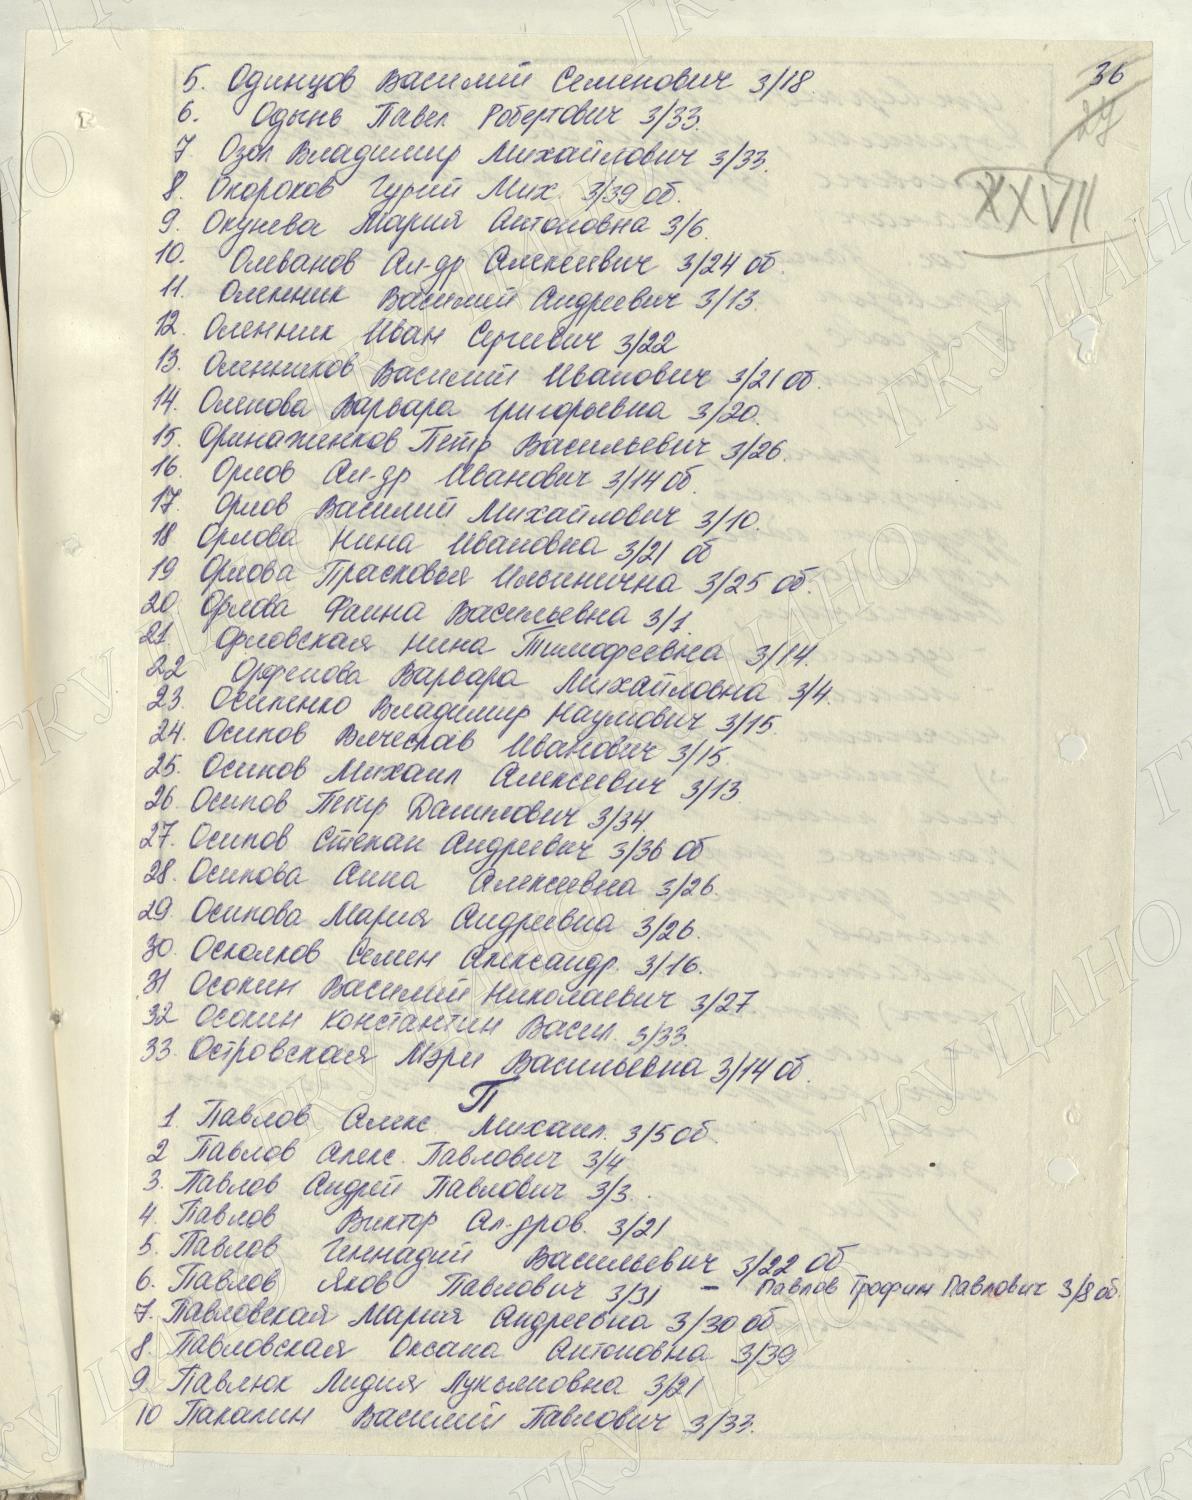 36
27
XXVII
5. Одинцов Василий Семенович 3/18.
6. Одынь Павел Робертович 3/33.
7 Озол Владимир Михайлович 3/33.
8. Окороков Гурий Мих 3/39 об.
9. Окунева Мария Антоновна 3/6.
10. Олеванов Ал-др Алексеевич 3/24 об.
11. Оленник Василий Андреевич 3/13.
12. Оленник Иван Сергеевич 3/22
13. Оленников Василий Иванович 3/21 об.
14. Оленова Варвара Григорьевна 3/20.
15. Оринаженков Петр Васильевич 3/26.
16. Орлов Ал-др Иванович 3/14 об.
17. Орлов Василий Михайлович 3/10.
18 Орлова Нина Ивановна 3/21 об
19 Орлова Прасковья Ильинична 3/25 об.
20 Орлова Фаина Васильевна 3/1.
21 Орловская Нина Тимофеевна 3/14.
22 Орфенова Варвара Михайловна 3/4.
23. Осипенко Владимир Наумович 3/15.
24. Осипов Вячеслав Иванович 3/15.
25. Осипов Михаил Алексеевич 3/13.
26. Осипов Петр Данилович 3/34.
27. Осипов Степан Андреевич 3/36 об
28. Осипова Анна Алексеевна 3/26.
29. Осипова Мария Андреевна 3/26.
30. Осколков Семен Александр. 3/16.
31 Осокин Василий Николаевич 3/27
32 Осокин Константин Васил. 3/33.
33. Островская Мэри Васильевна 3/14 об.
П
1. Павлов Алекс. Михаил. 3/5 об.
2 Павлов Алекс. Павлович 3/4
3. Павлов Андрей Павлович 3/3.
4. Павлов Виктор Ал-дров. 3/21
5. Павлов Геннадий Васильевич 3/22 об
6. Павлов Яков Павлович 3/31 – Павлов Трофим Павлович 3/8 об.
7. Павловская Мария Андреевна 3/30 об
8. Павловская Оксана Антоновна 3/39
9. Павлюк Лидия Лукьяновна 3/21
10 Пакалин Василий Павлович 3/33.
ГКУ ЦАНО